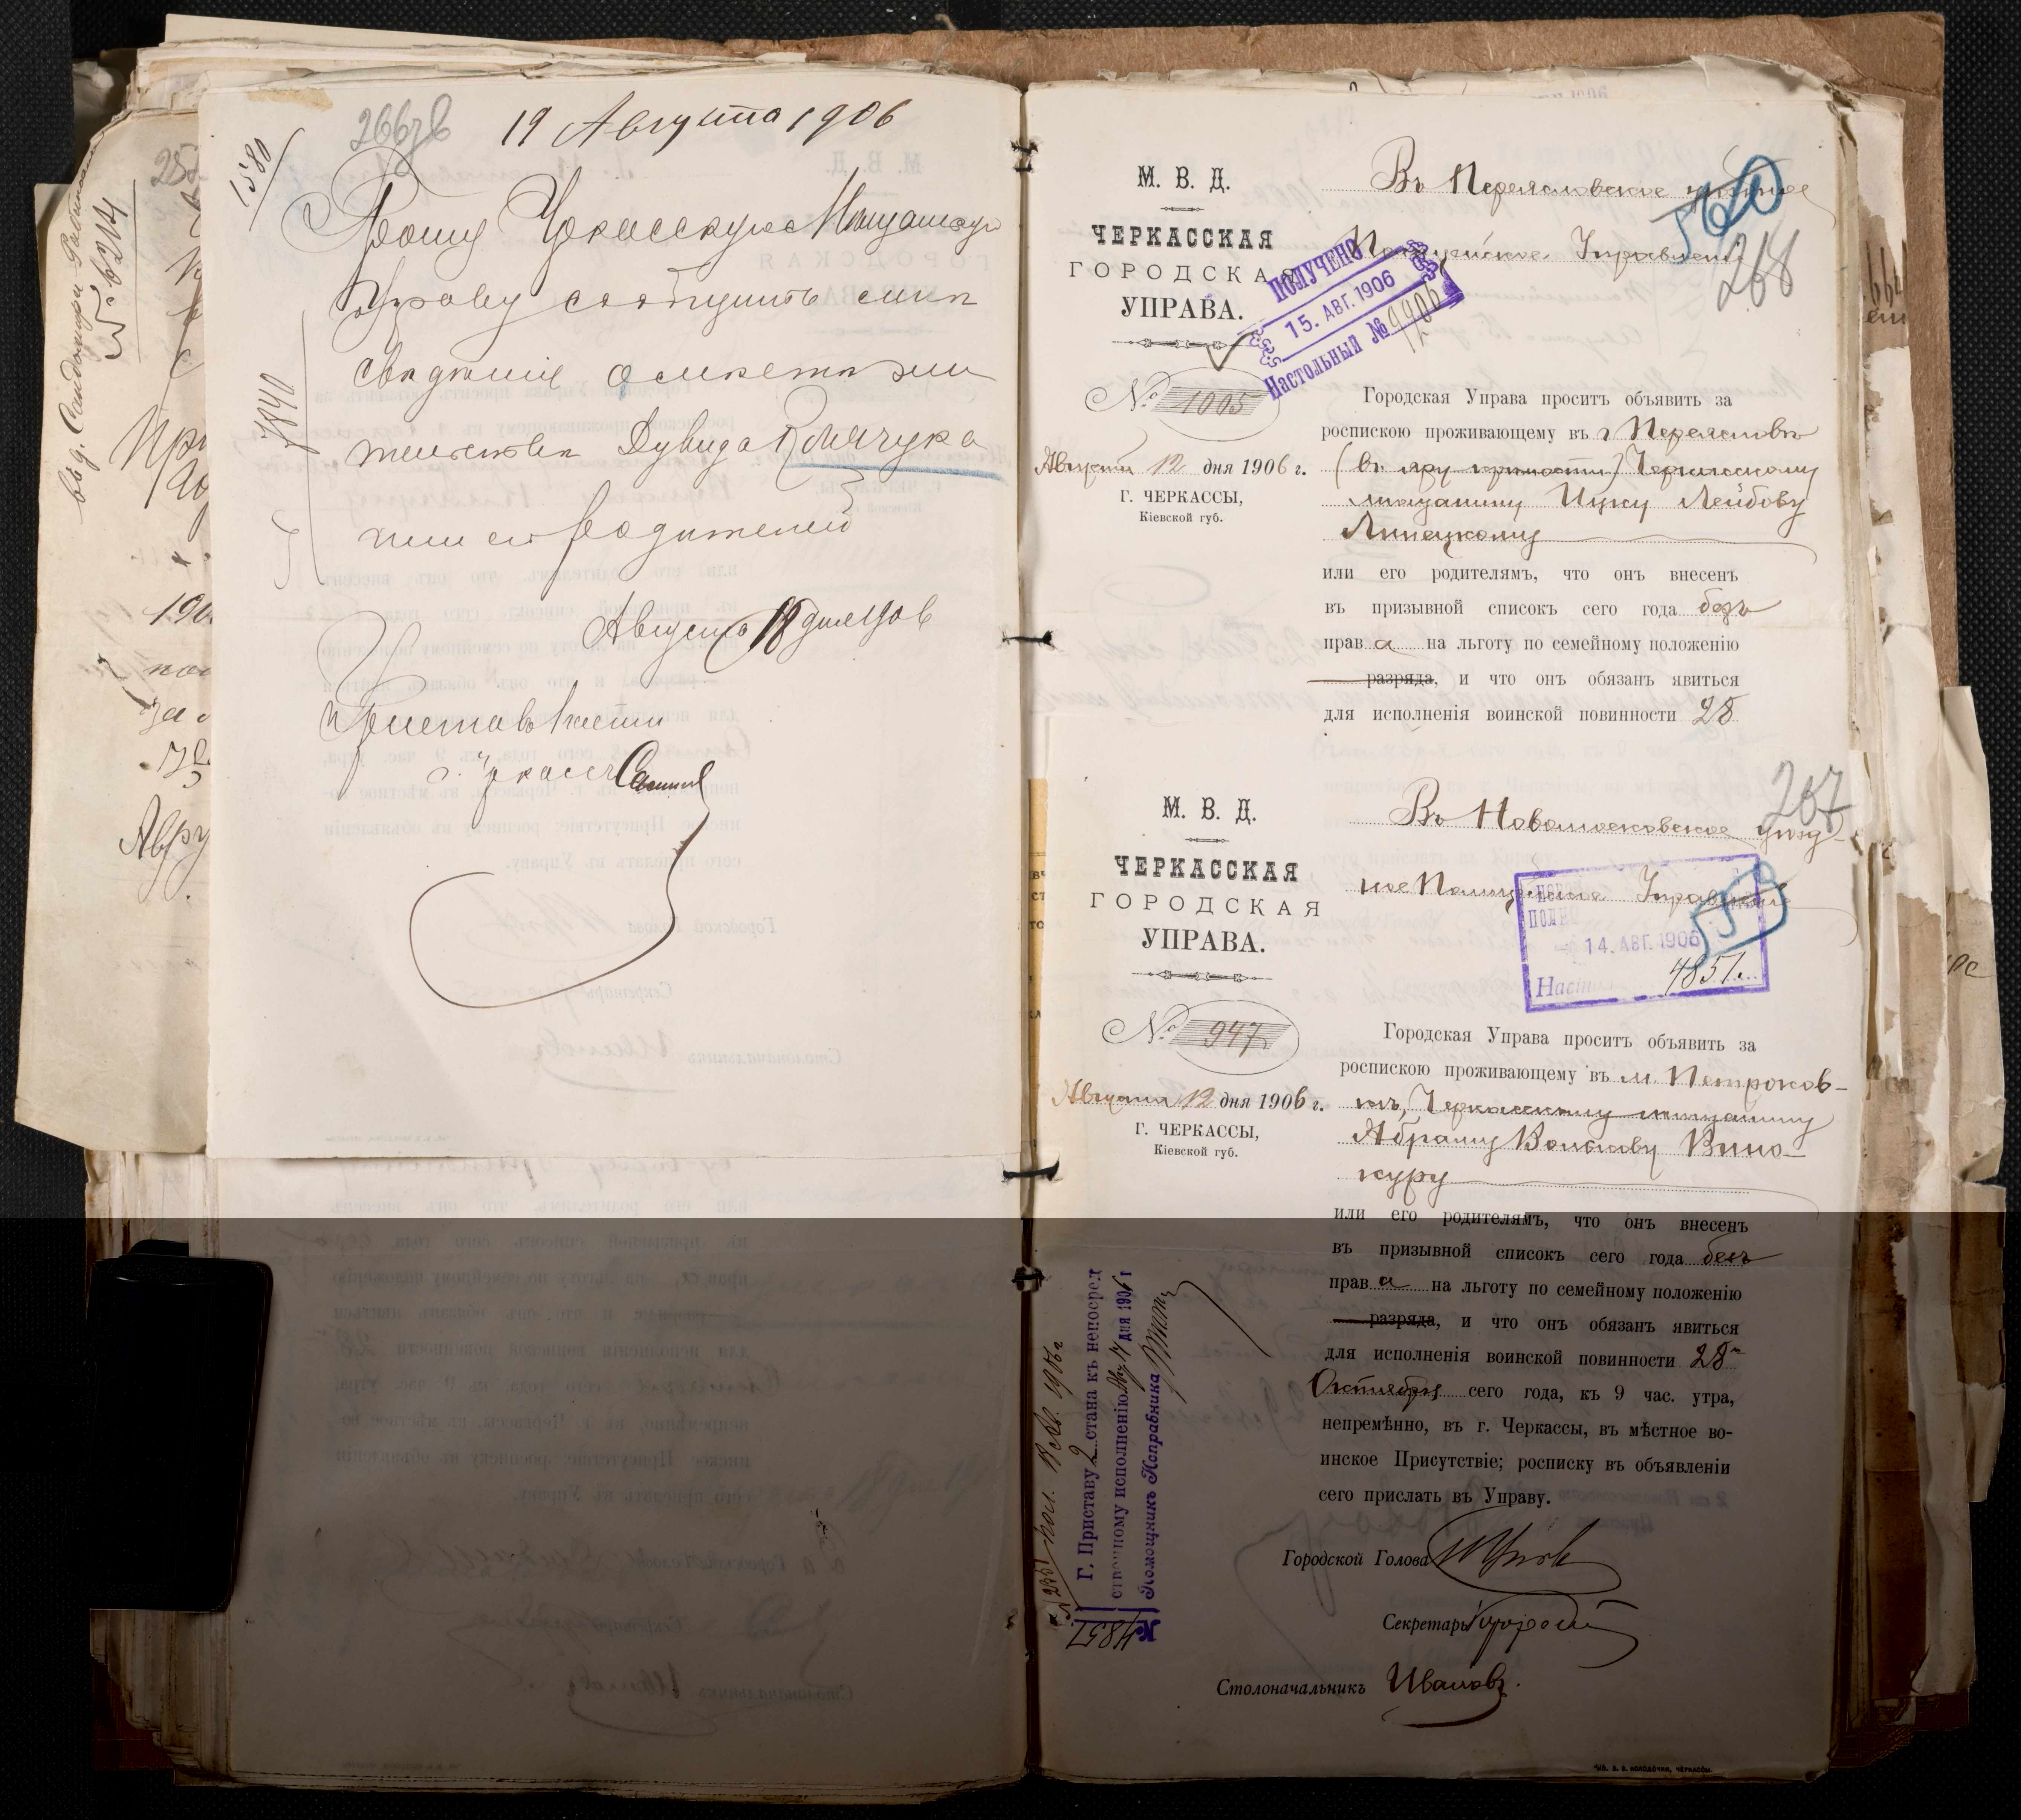 266 зв
19 Августа 1906
1580
Прошу Черкасскую Мещанскую
Управу сообщить мнѣ
свѣдѣніе о мѣстѣ жи
тельства Дувида Клячука
или его родителей
Августа 18 дня 1906
7840
г. Черкассъ
въ г.
№ 6214
М. В. Д.
ЧЕРКАССКАЯ
ГОРОДСКАЯ
УПРАВА.
№ 1005
Августа 12 дня 1906 г.
Г. ЧЕРКАССЫ,
Кіевской губ.
Въ Переяславское уѣздное
Полицейское Управленіе
560
268
ПОЛУЧЕНО
15. АВГ. 1906
Настольный № 9906
Городская Управа проситъ объявить за
роспискою проживающему въ г. Переяславѣ
Черкасскому
мѣщанину Ицку Лейбову
Липецкому
или его родителямъ, что онъ внесенъ
въ призывной списокъ сего года безъ
права на льготу по семейному положенію
разряда, и что онъ обязанъ явиться
для исполненія воинской повинности 28
М. В. Д.
ЧЕРКАССКАЯ
ГОРОДСКАЯ
УПРАВА.
№ 947
Августа 12 дня 1906 г.
Г. ЧЕРКАССЫ,
Кіевской губ.
267
Въ Новомосковское уѣзд-
ное Полицейское Управленіе
14. АВГ. 1906
4851.
Городская Управа проситъ объявить за
роспискою проживающему въ м. Петроков-
кѣ, Черкасскому мѣщанину
Абраму Волькову Вино-
куру
или его родителямъ, что онъ внесенъ
въ призывной списокъ сего года безъ
права на льготу по семейному положенію
разряда, и что онъ обязанъ явиться
для исполненія воинской повинности 28
Октября сего года, къ 9 час. утра,
непремѣнно, въ г. Черкассы, въ мѣстное во-
инское Присутствіе; росписку въ объявленіи
сего прислать въ Управу.
Городской Голова
Секретарь
Столоначальникъ Ивановъ.
Г. Приставу 2 стана къ непосред
ственному исполненію Авг 17 дня 1906 г
Помощникъ Исправника
№ 4851